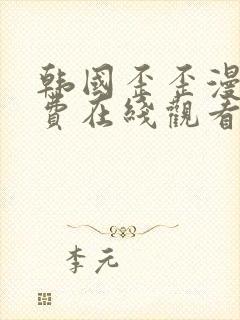 韩國歪歪漫
費在綫觀看
李元